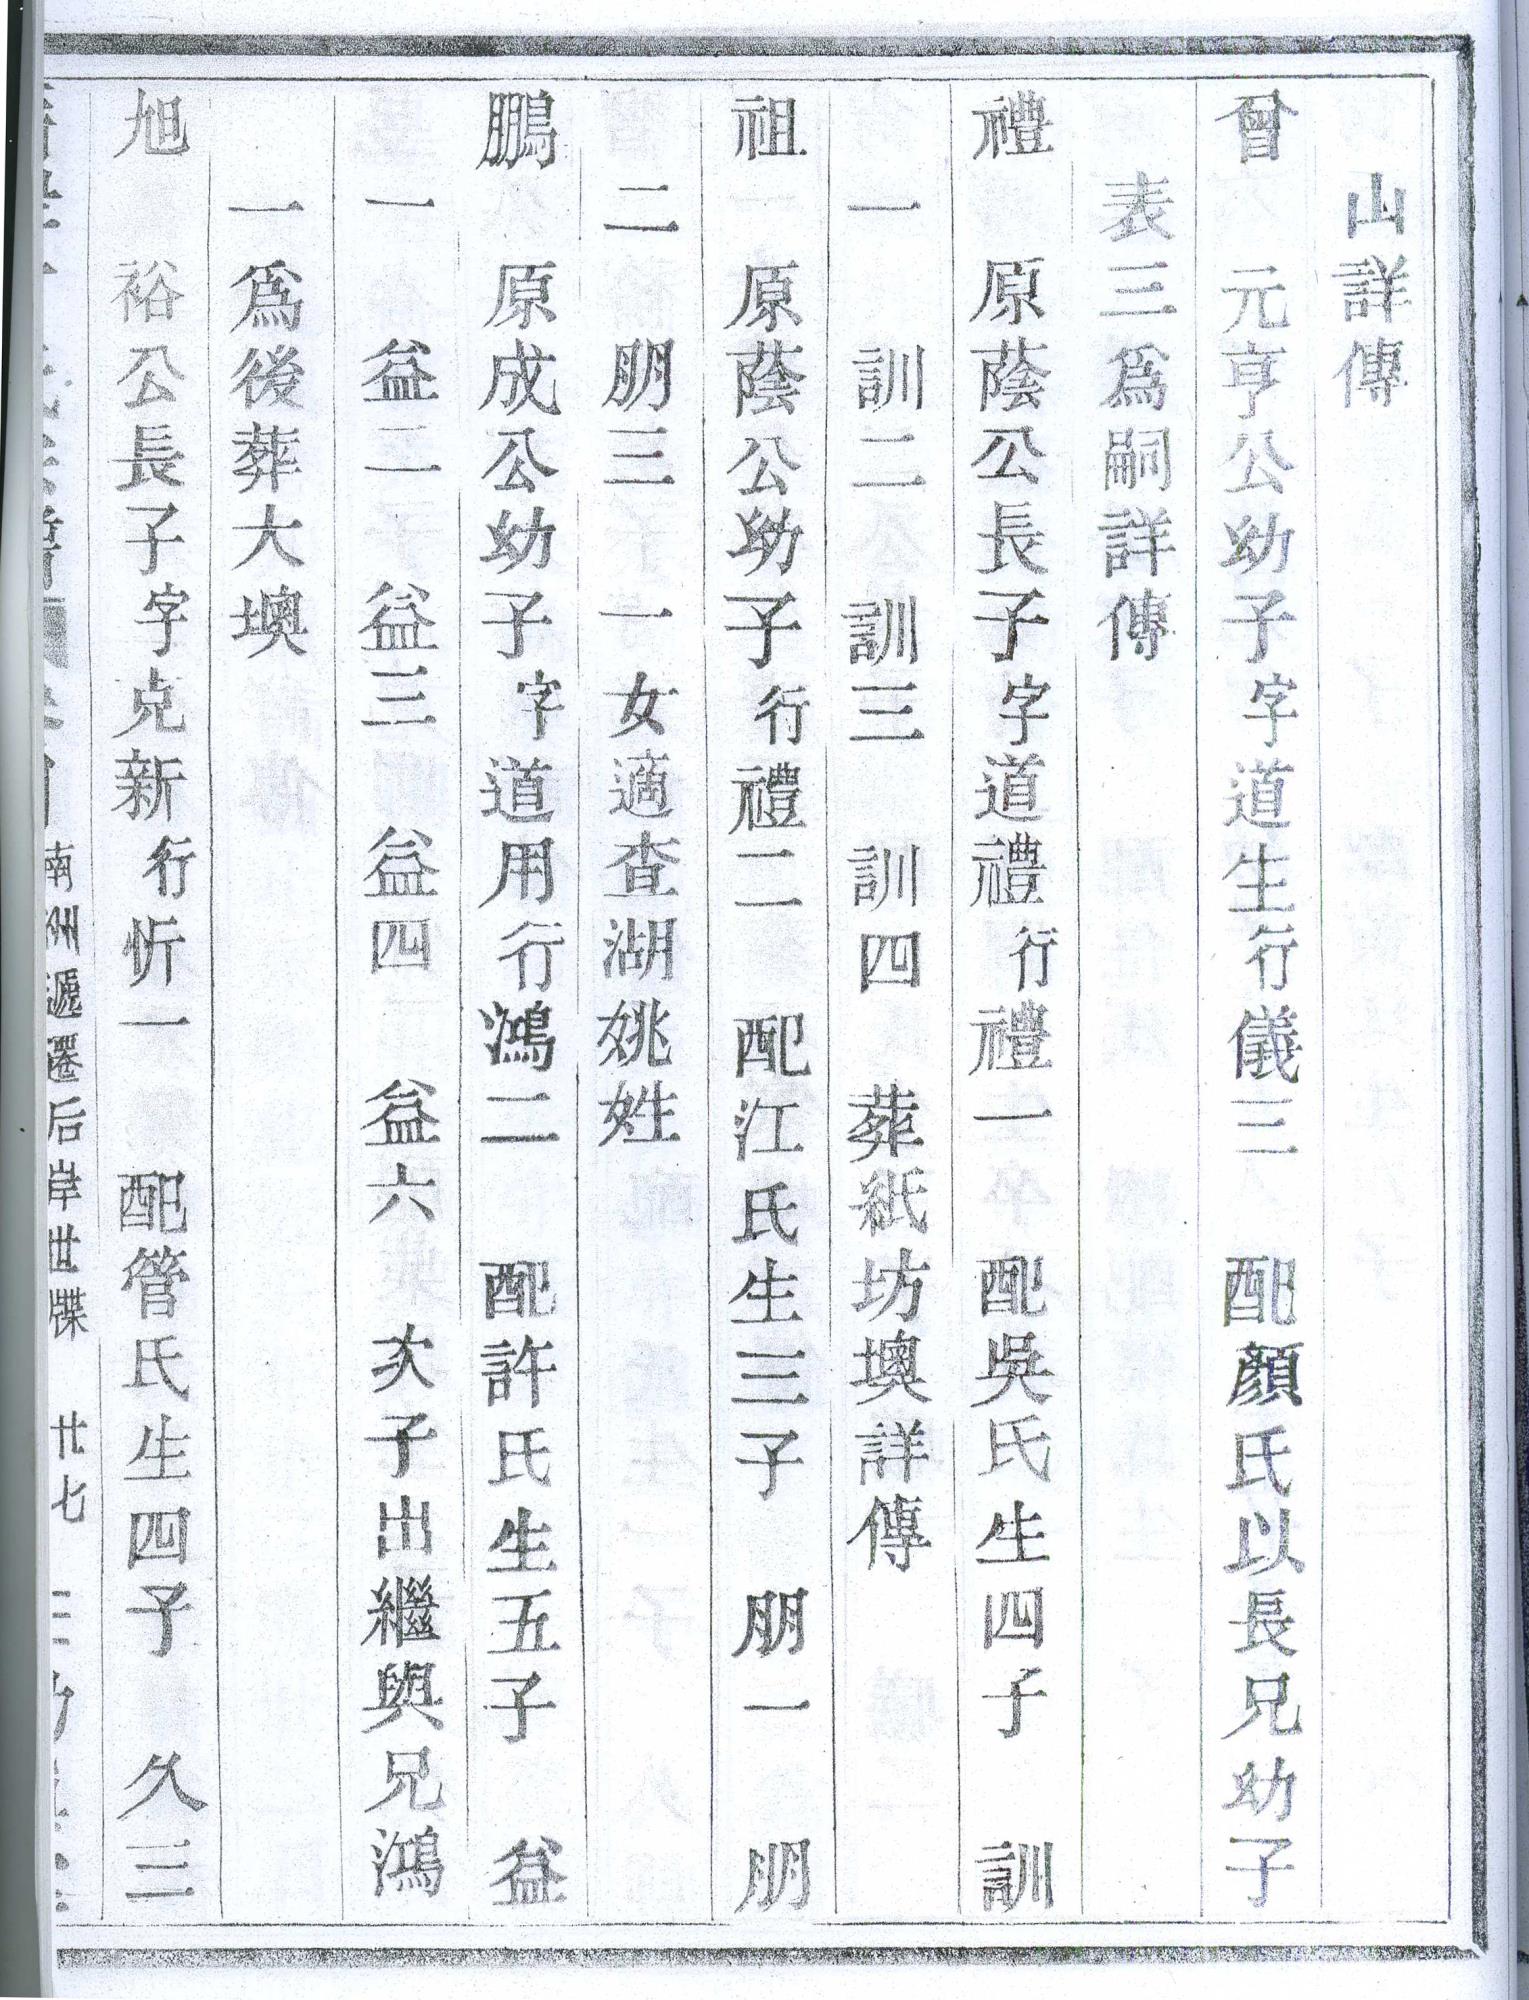 山詳傳
曾 元亨公幼子字道生行儀三 配顏氏以長兄幼子
表三爲嗣詳傳
禮 原蔭公長子字道禮行禮一 配吳氏生四子 訓
一 訓二 訓三 訓四 葬紙坊墺詳傳
祖 原蔭公幼子行禮二 配江氏生三子 朋一 朋
二 朋三 一女適查湖姚姓
鵬 原成公幼子字道用行鴻二 配許氏生五子 益
一 益二 益三 益四 益六 次子出繼與兄鴻
一爲後葬大墺
旭 裕公長子字克新行忻一 配管氏生四子 久三
南州遷后岸世牒 廿七